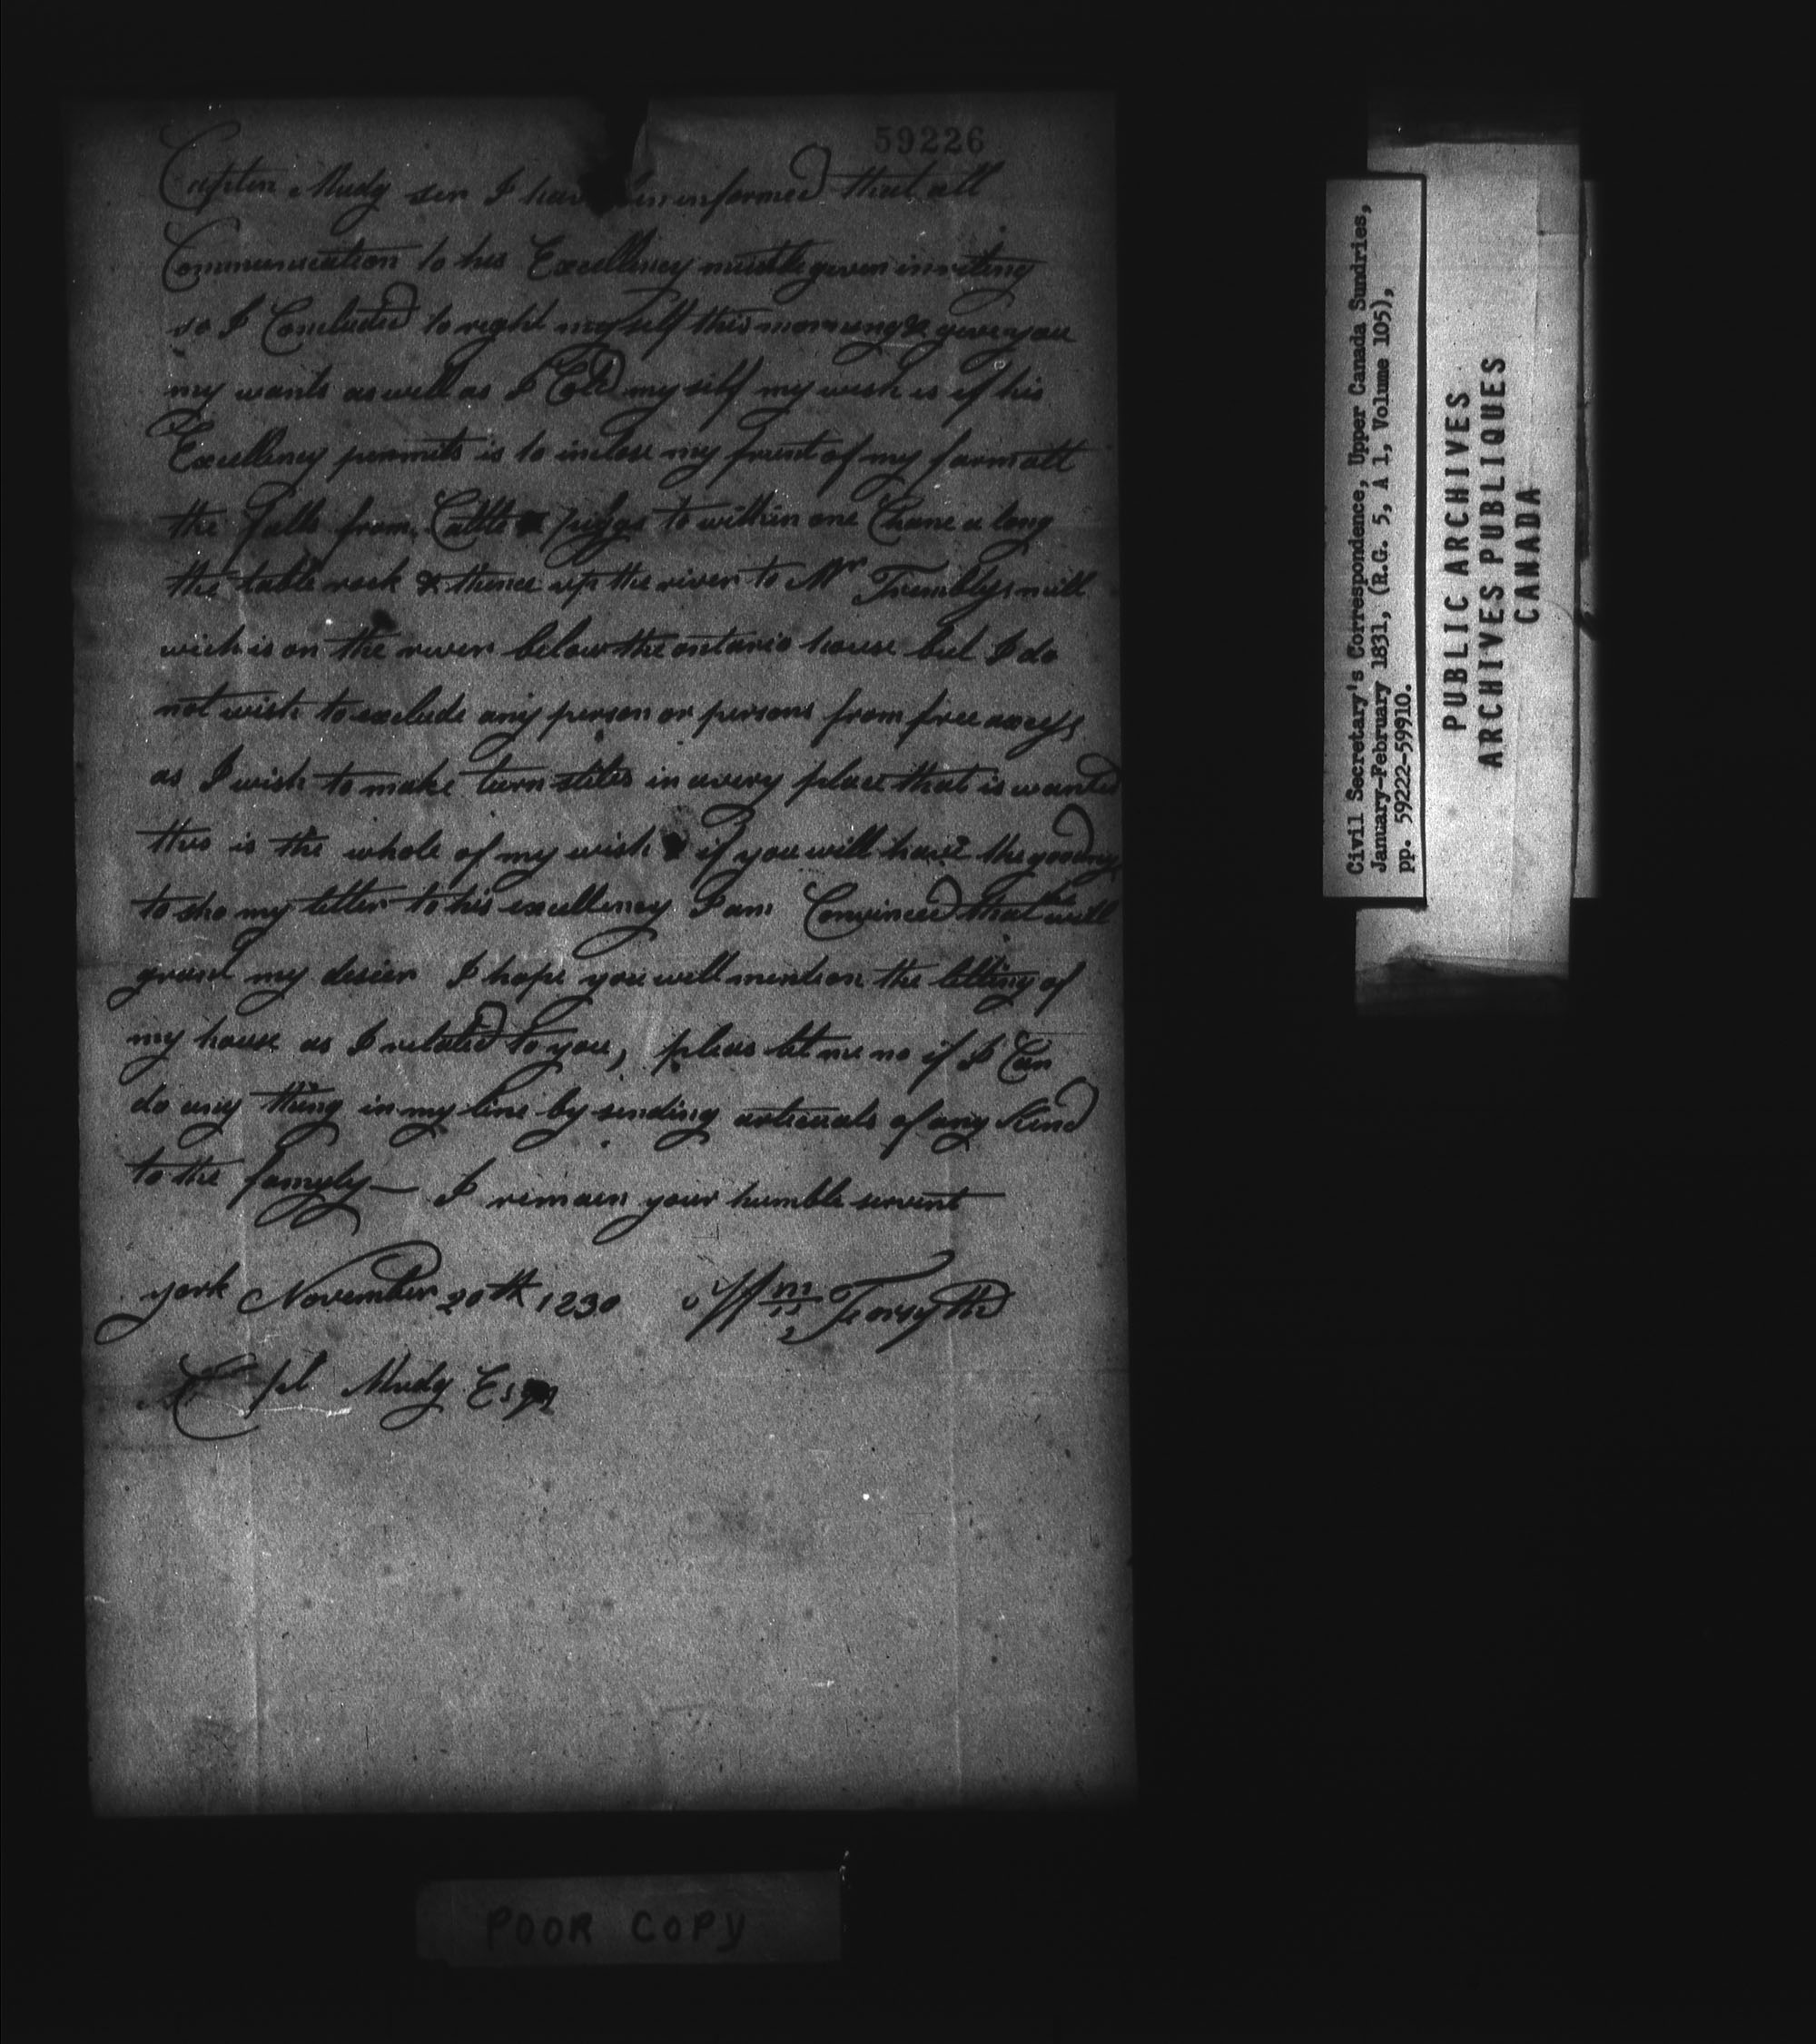 59226
Capten Mudg ser I have ben informed that all
Communication to his Excellency must be given in riting
so I Concluded to right my self this morning & give you
my wants as well as I Cold my self my wish is if his
Excellency permits is to inclose my frunt of my farm att
the falls from Cattle piggs to within one Chane a long
the table rock & thence up the river to Mr Tremblys mill
wich is on the river below the ontario house but I do
not wish to exclude any person or persons from free axcess
as I wish to make turn stiles in avery place that is wanted
this is the whole of my wish if you will have the goodness
to sho my letter to his excellency I am Convinced that he will
grant my desier I hope you will mention the letting of
my house as I related to you, pleas let me no if I Can
do any thing in my line by sending arteicals of any Kind
to the famyly — I remain your humble servent
york November 20th 1830 Wm Forsyth
Capt Mudg Esqr
POOR COPY
Civil Secretary's Correspondence, Upper Canada Sundries,
January-February 1831, (R.G. 5, A 1, Volume 105),
pp. 59222-59910.
PUBLIC ARCHIVES
ARCHIVES PUBLIQUES
CANADA